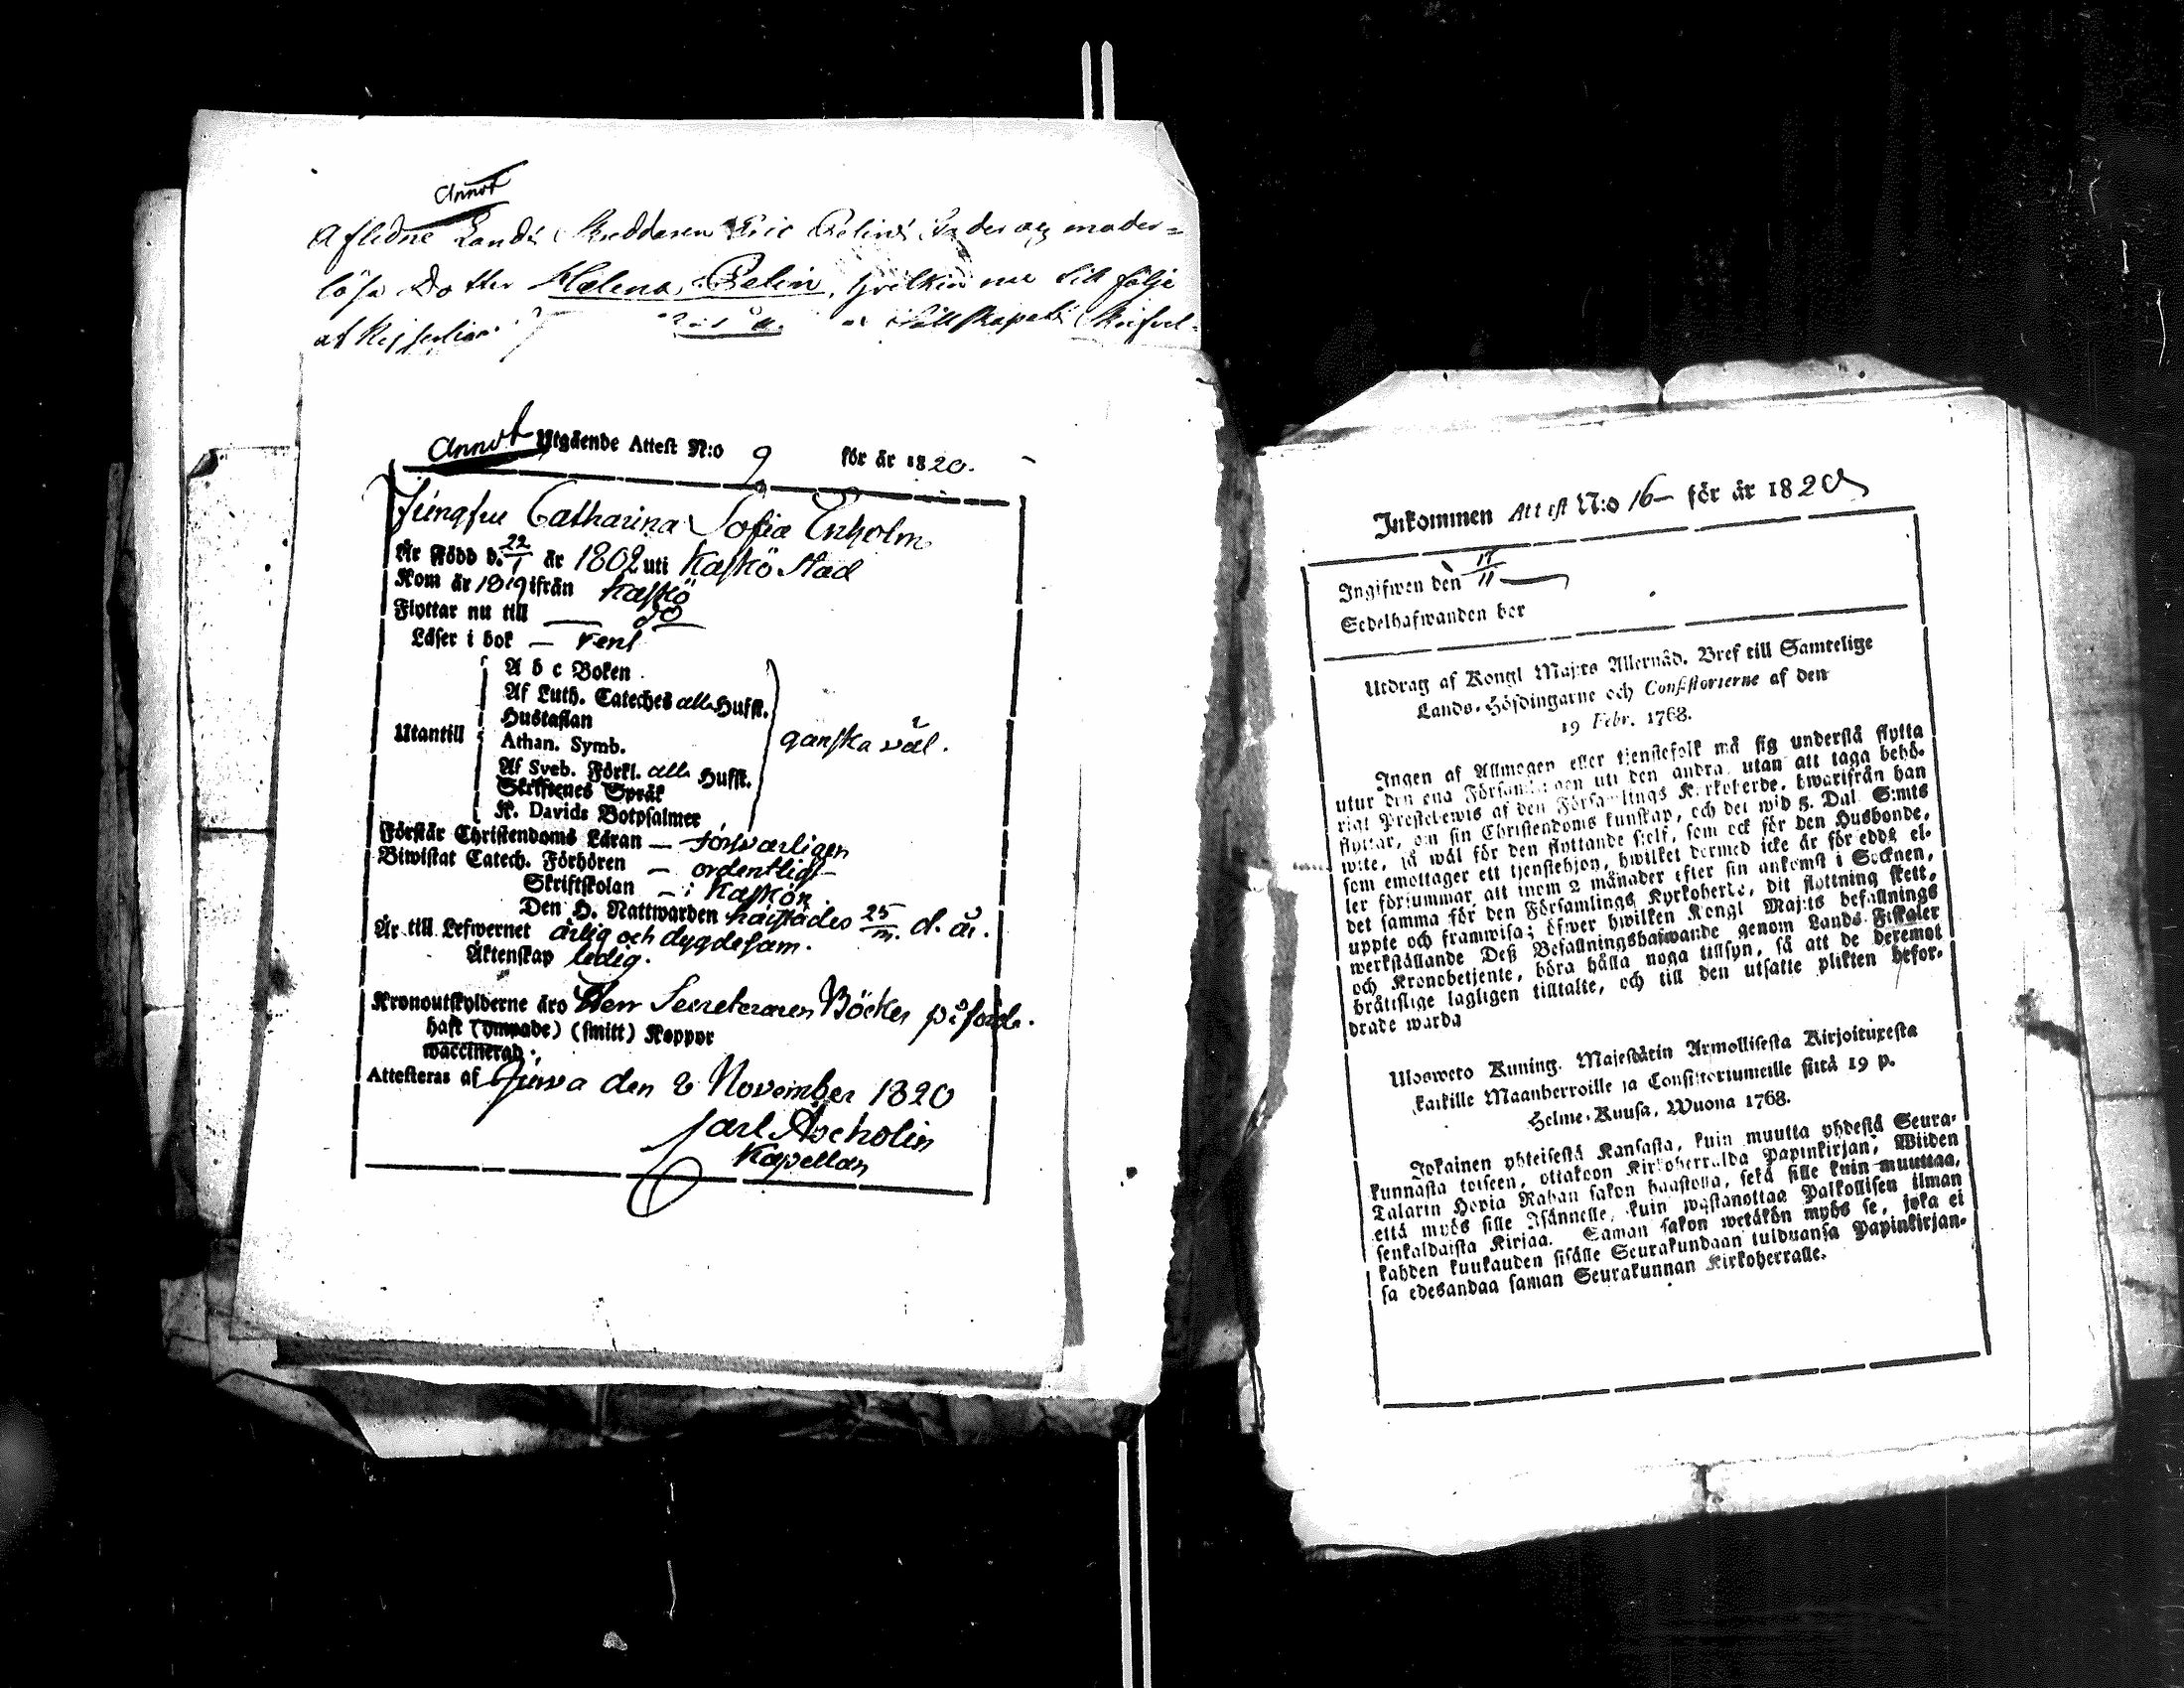 Annot
Aflidne Lands Skreddaren Eric Fader och moder=
lösa Dotter Helena hvilken nu till följe
af
Annot Utgående Attest N:o 9 för år 1820.
Jungfru Catharina Sofia Enholm
Är Född d. 22/1 år 1802 uti Kaskö stad
Kom år 1819 ifrån Kaskö
Flyttar nu till do
Läser i bok — rent
A b c Boken
Af Luth. Cateches alla Hufst.
Hustaflan
Utantill Athan. Symb. ganska väl.
Af Sveb. Förkl. alla Hufst.
Skriftenes Språk
K. Davids Botpsalmer
Förstår Christendoms Läran — försvarligen
Biwistat Catech. Förhören — ordentligt
Skriftskolan — i Kaskön
Den H. Nattwarden härstädes 25/m. d. år.
Är till Lefwernet ärlig och dygdesam.
Äktenskap ledig.
Kronoutskylderne äro Herr Secreteraren Böcker påförde.
haft (ympade) (smitt) Koppor
waccinerad
Attesteras af Jurva den 2 November 1820
Carl Ascholin
Kapellan
Inkommen Attest N:o 16 — för år 1820
Ingifwen den 17/11 —
Sedelhafwanden bor
Utdrag af Kongl Maj:ts Allernåd. Bref till Samtelige
Lands-Höfdingarne och Consistorierne af den
19 Febr. 1768.
Ingen af Allmogen eller tjenstefolk må sig understå flytta
utur den ena Församlingen uti den andra, utan att taga behö-
rigt Prestebewis af den Församlings Kyrkoherde, hwarifrån han
flyttar, om sin Christendoms kunskap, och det wid 5. Dal. S:mts
wite, så wäl för den flyttande sjelf, som ock för den Husbonde,
som emottager ett tjenstehjon, hwilket dermed icke är försedt, el-
ler försummar, att inom 2 månader efter sin ankomst i Socknen,
det samma för den Församlings Kyrkoherde, dit flyttning skett,
uppte och framwisa; öfwer hwilken Kongl Maj:ts befallnings
werkställande Deß Befallningshafwande genom Lands Fiskaler
och Kronobetjente, böra hålla noga tillsyn, så att de deremot
bråttslige lagligen tilltalte, och till den utsatte plikten befor-
drade warda
Ulosweto Kuning. Majestätin Armollisesta Kirjoituxesta
kaikille Maanherroille ja Consistoriumeille siitä 19 p.
Helme-Kuusa, Wuona 1768.
Jokainen yhteisestä Kansasta, kuin muutta yhdestä Seura-
kunnasta toiseen, ottakoon Kirkoherralda Papinkirjan; Wiiden
Talarin Hopia Rahan sakon haastolla, sekä sille kuin muuttaa,
että myös sille Isännelle, kuin wastanottaa Palkollisen ilman
senkaldaista Kirjaa. Saman sakon wetäkön myös se, joka ei
kahden kuukauden sisälle Seurakundaan tulduansa Papinkirjan-
sa edesandaa saman Seurakunnan Kirkoherralle.